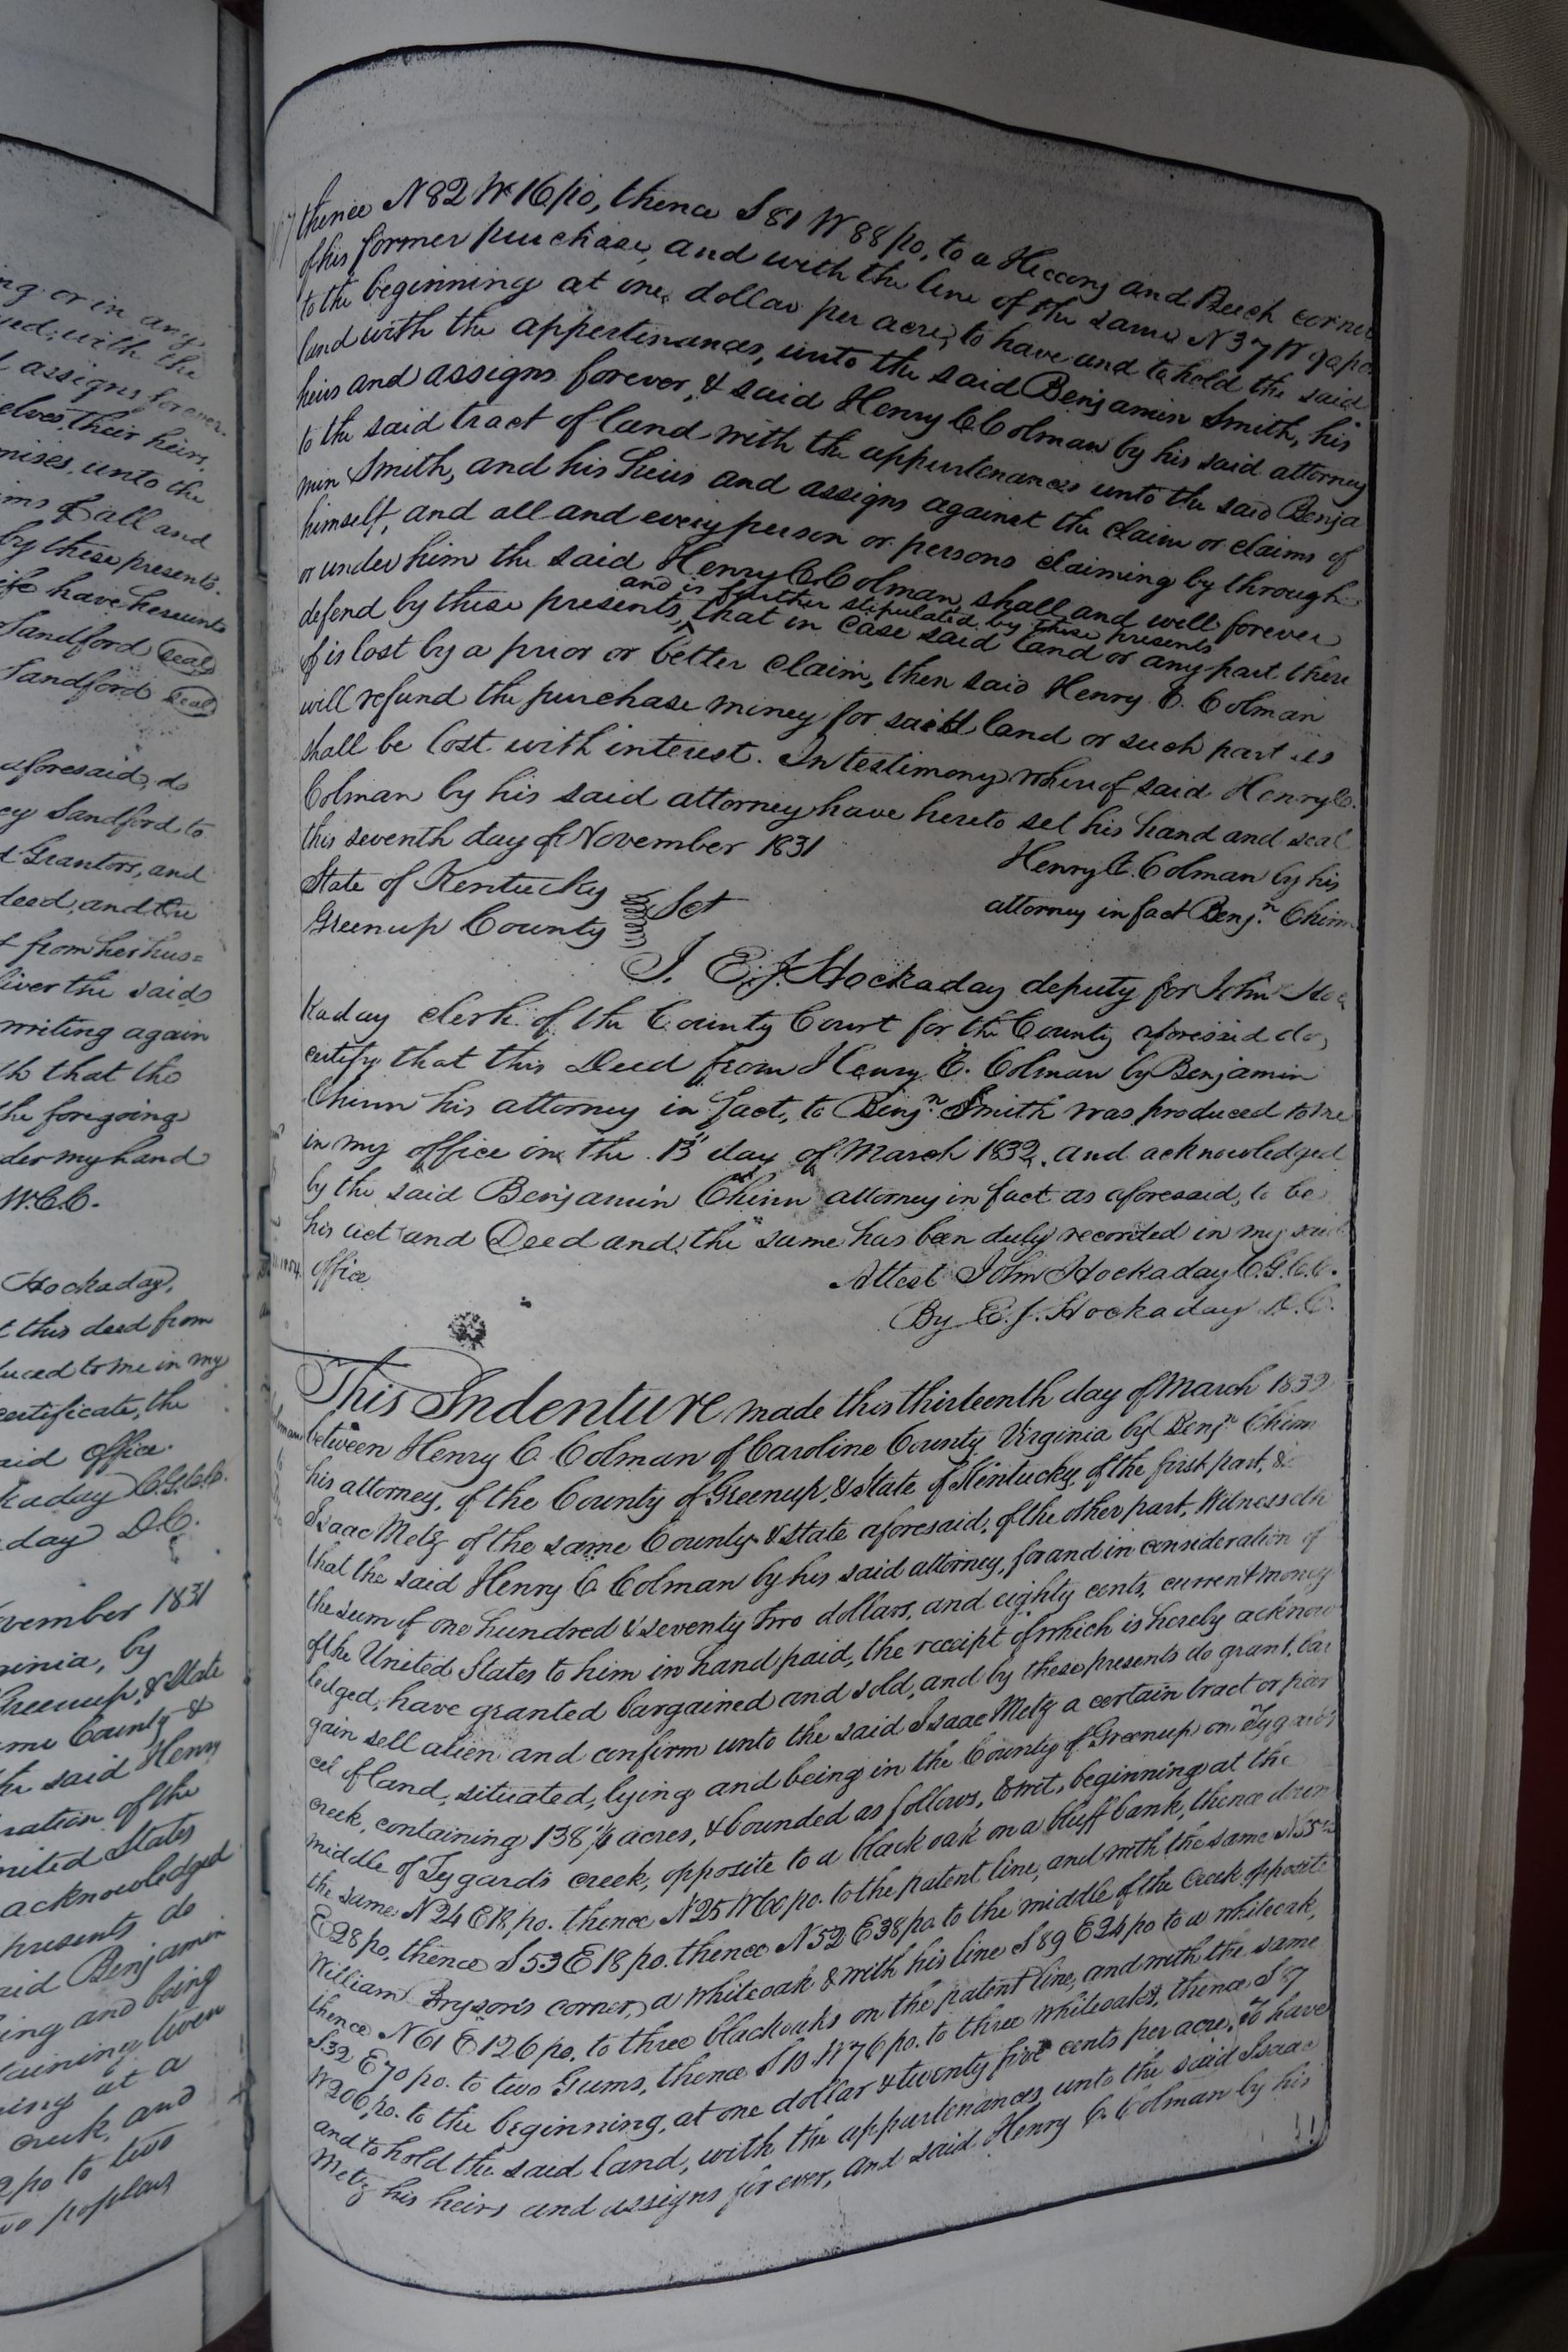 ng or in any
ued, with the
l assigns forever.
elves, their heirs,
mises, unto the
ims of all and
by these presents.
ife have hereunto
Sandford Seal
Sandford Seal
aforesaid, do
cy Sandford to
d Grantors, and
deed, and the
t from her hus=
liver the said
writing again
th that the
he foregoing
der my hand
W.C.C.
Hockaday,
t this deed from
duced to me in my
certificate, the
aid office.
kaday C.G.C.C.
day D.C.
vember 1831
ginia, by
Greenup, & State
ame County &
he said Henry
ration of the
nited States
acknowledged
presents do
aid Benjamin
ing and being
taining
ing at a
creek, and
po to two
wo poplars
thence N 82 W 16 po, thence S 81 W 88 po, to a Hiccory and Beech corner
of his former purchase, and with the line of the same N 37 W po
to the beginning at one dollar per acre, to have and to hold the said
land with the appertinances, unto the said Benjamin Smith, his
heirs and assigns forever, & said Henry C Colman by his said attorney
to the said tract of land with the appurtenances unto the said Benja
min Smith, and his heirs and assigns against the claim or claims of
himself, and all and every person or persons claiming by through
or under him the said Henry C Colman, shall and will forever
and is further stipulated by these presents
defend by these presents, that in case said land or any part there
of is lost by a prior or better claim, then said Henry C. Colman
will refund the purchase money for said land or such part as
shall be lost with interest. In testimony whereof said Henry C.
Colman by his said attorney have hereto set his hand and seal
this seventh day of November 1831
Henry C. Colman by his
attorney in fact Benjn Chinn
State of Kentucky
Greenup County Sct
I. E. J. Hockaday deputy for John Hoc
kaday clerk of the County Court for the County aforesaid do,
certify that this Deed from Henry C. Colman by Benjamin
Chinn his attorney in fact, to Benjn Smith was produced to me
in my office on the 13th day of March 1832, and acknowledged
by the said Benjamin Chinn attorney in fact as aforesaid, to be
his act and Deed and the same has been duly recorded in my said
office
Attest John Hockaday C.G.C.C.
By E. J. Hockaday D.C.
This Indenture made this thirteenth day of March 1832
between Henry C. Colman of Caroline County Virginia by Benjn Chinn
his attorney, of the County of Greenup, & State of Kentucky, of the first part, &
Isaac Metz of the same County & state aforesaid, of the other part, Witnesseth
that the said Henry C Colman by his said attorney, for and in consideration of
the sum of one hundred & seventy two dollars, and eighty cents, current money
of the United States to him in hand paid, the receipt of which is hereby acknow
ledged, have granted bargained and sold, and by these presents do grant, bar
gain sell alien and confirm unto the said Isaac Metz a certain tract or par
cel of land, situated, lying and being in the County of Greenup on Tygards
creek, containing 138 acres, & bounded as follows, towit, beginning at the
middle of Tygards creek, opposite to a black oak on a bluff bank, thence down
the same N 24 E 18 po. thence N 25 W 60 po. to the patent line, and with the same N 55
E 28 po, thence S 53 E 18 po. thence N 52 E 38 po to the middle of the Creek opposite
William Bryson's corner, a whiteoak & with his line S 89 E 24 po to a whiteoak,
thence N 61 E 126 po. to three blackoaks on the patent line, and with the same
S 32 E 70 po. to two Gums, thence S 10 W 76 po. to three whiteoaks, thence S 87
W 206 po. to the beginning, at one dollar & twenty five cents per acre, To have
and to hold the said land, with the appurtenances, unto the said Isaac
Metz his heirs and assigns forever, and said Henry C. Colman by his